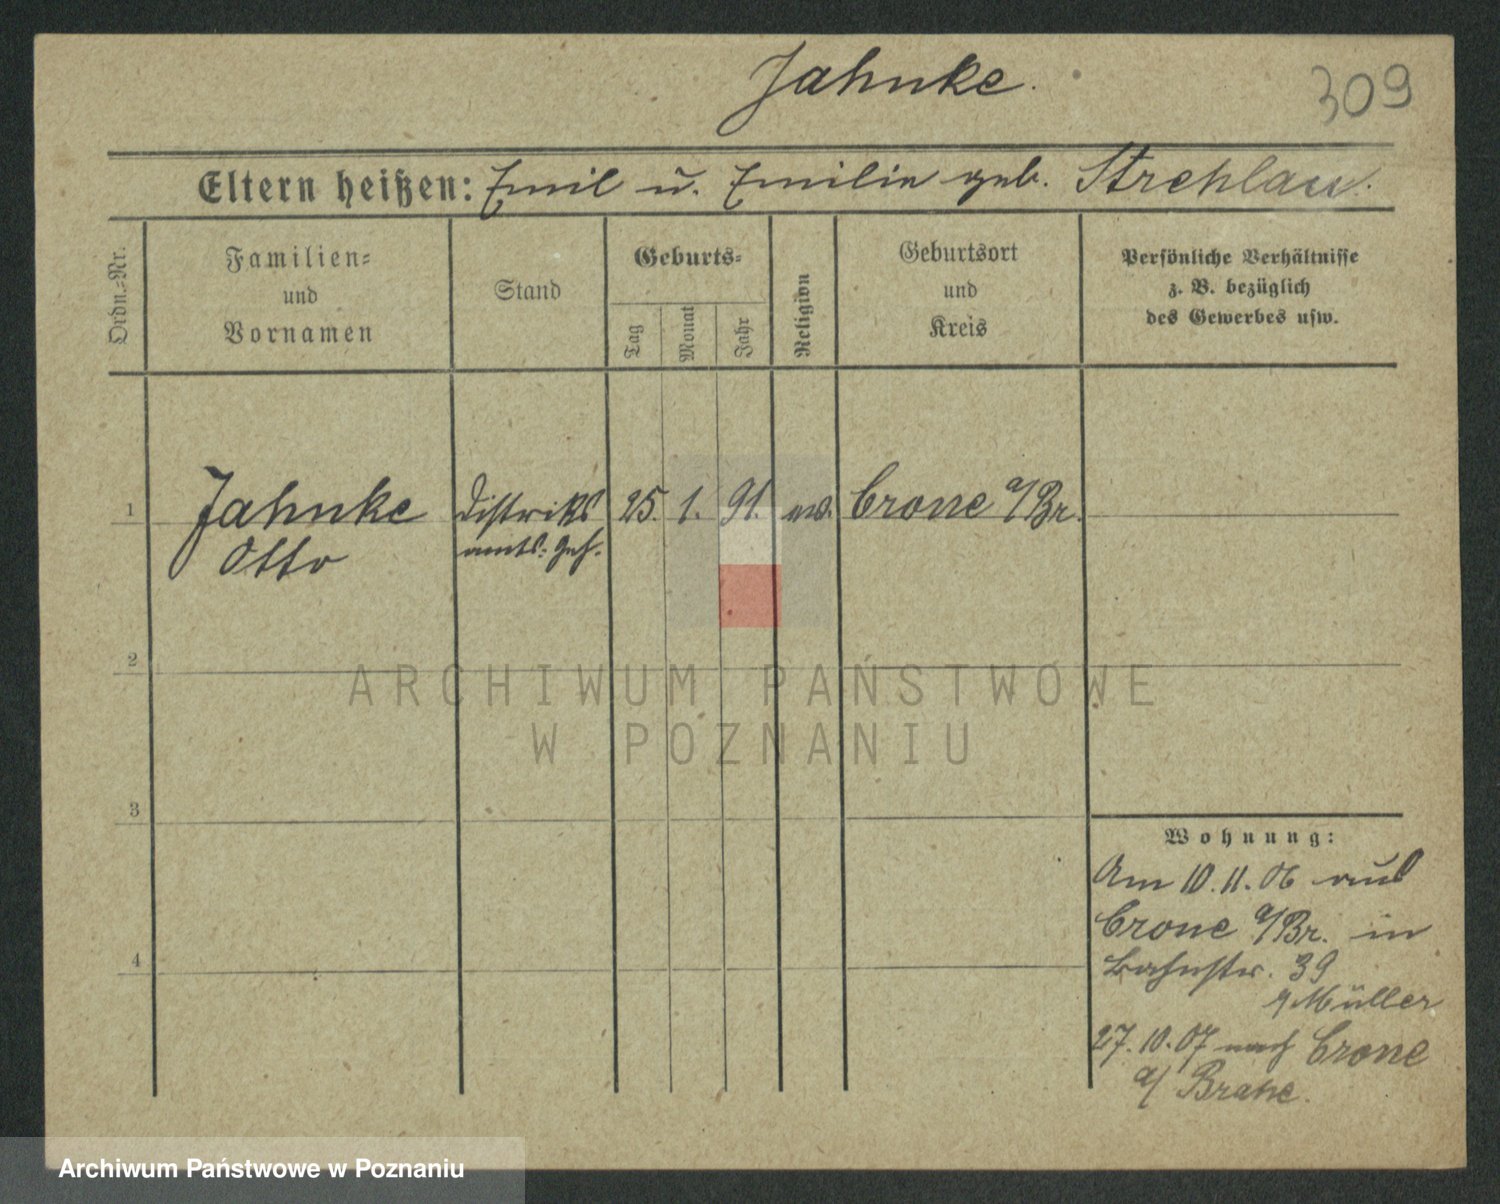 Jahnke.
309
Eltern heißen: Emil u. Emilie geb. Strehlau.
Ordn.=Nr.
Familien=
und
Vornamen
Stand
Geburts=
Tag
Monat
Jahr
Religion
Geburtsort
und
Kreis
Persönliche Verhältnisse
z. B. bezüglich
des Gewerbes usw.
1
Jahnke
Otto
Distrikts
amts: Geh.
25. 1. 91. ev. Crone a/Br.
2
3
4
Wohnung:
Am 10.11.06 aus
Crone a/Br. in
Bahnstr. 39
Müller
27.10.07 nach Crone
a/ Brahe.
ARCHIWUM PAŃSTWOWE
W POZNANIU
Archiwum Państwowe w Poznaniu